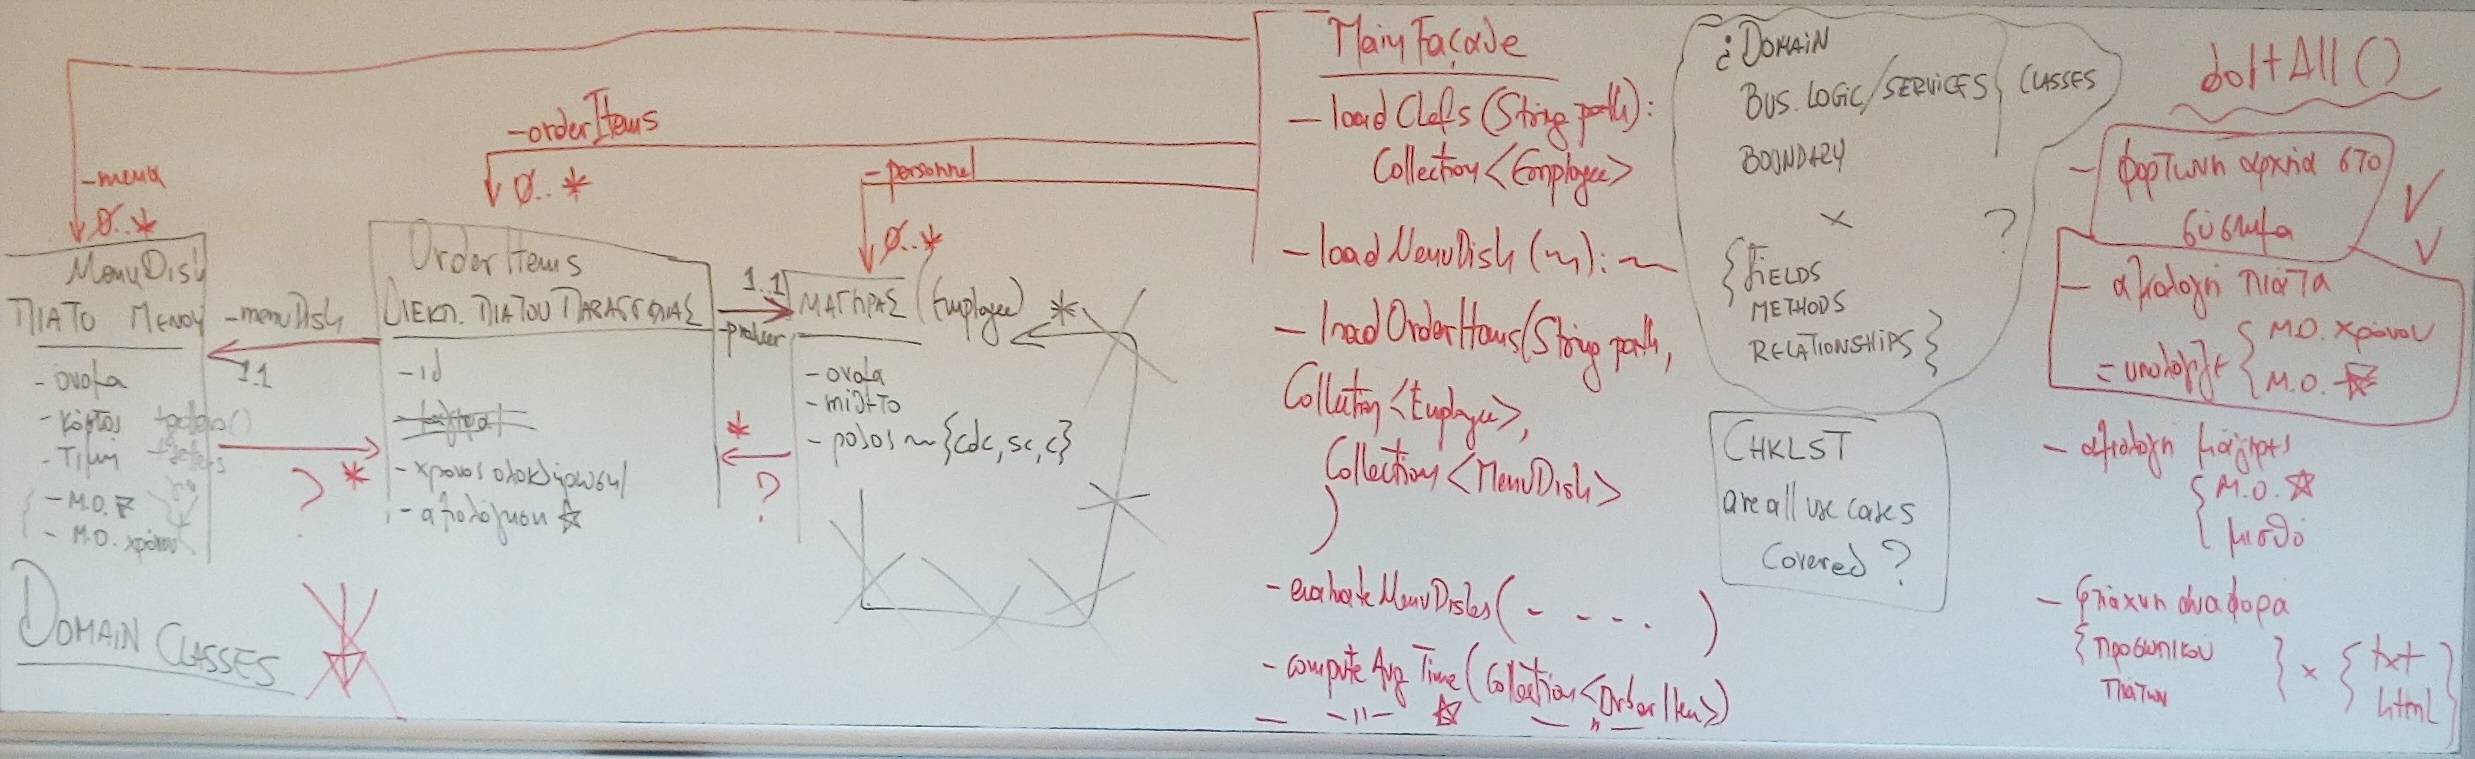 -menu
0..*
MenuDish
ΠΙΑΤΟ ΜΕΝΟΥ
- όνομα
- κόστος
- Τιμή
- Μ.Ο.
- Μ.Ο. χρόνου
DOMAIN CLASSES
-menuDish
1..1
? *
-orderItems
0..*
OrderItems
ΠΙΑΤΟΥ ΠΑΡΑΓΓΕΛΙΑΣ
-id
- χρονος ολοκλήρωσης
- αξιολόγηση ☆
1..1
*
?
-personnel
0..*
ΜΑΓΗΡΑΣ (Employee) *
- ονομα
- μισθο
- ρολος ~ {cdc, sc, c}
Main Façade
- load Chefs (String path):
Collection <Employee>
- load MenuDish (~): ~
- load OrderItems (String path,
Collection <Employee>,
Collection <MenuDish>
)
- evaluate MenuDishes (- - - - )
- compute Avg Time (Collection <OrderItem>)
- -11- ☆ - " -
¿ DOMAIN
BUS. LOGIC/SERVICES CLASSES
BOUNDARY
×
?
{ FIELDS
METHODS
RELATIONSHIPS }
CHKLST
are all use cases
Covered ?
doItAll ()
- φορτωνη αρχεια στο
συστημα
- αξιολογη πιατα
= υπολογιζε { Μ.Ο. χρόνου
Μ.Ο. ☆
- αξιολογη μάγηρες
{ Μ.Ο. ☆
μισθό
- φτιαχνη αναφορα
{ προσωπικου
πιατων } × { txt
html }